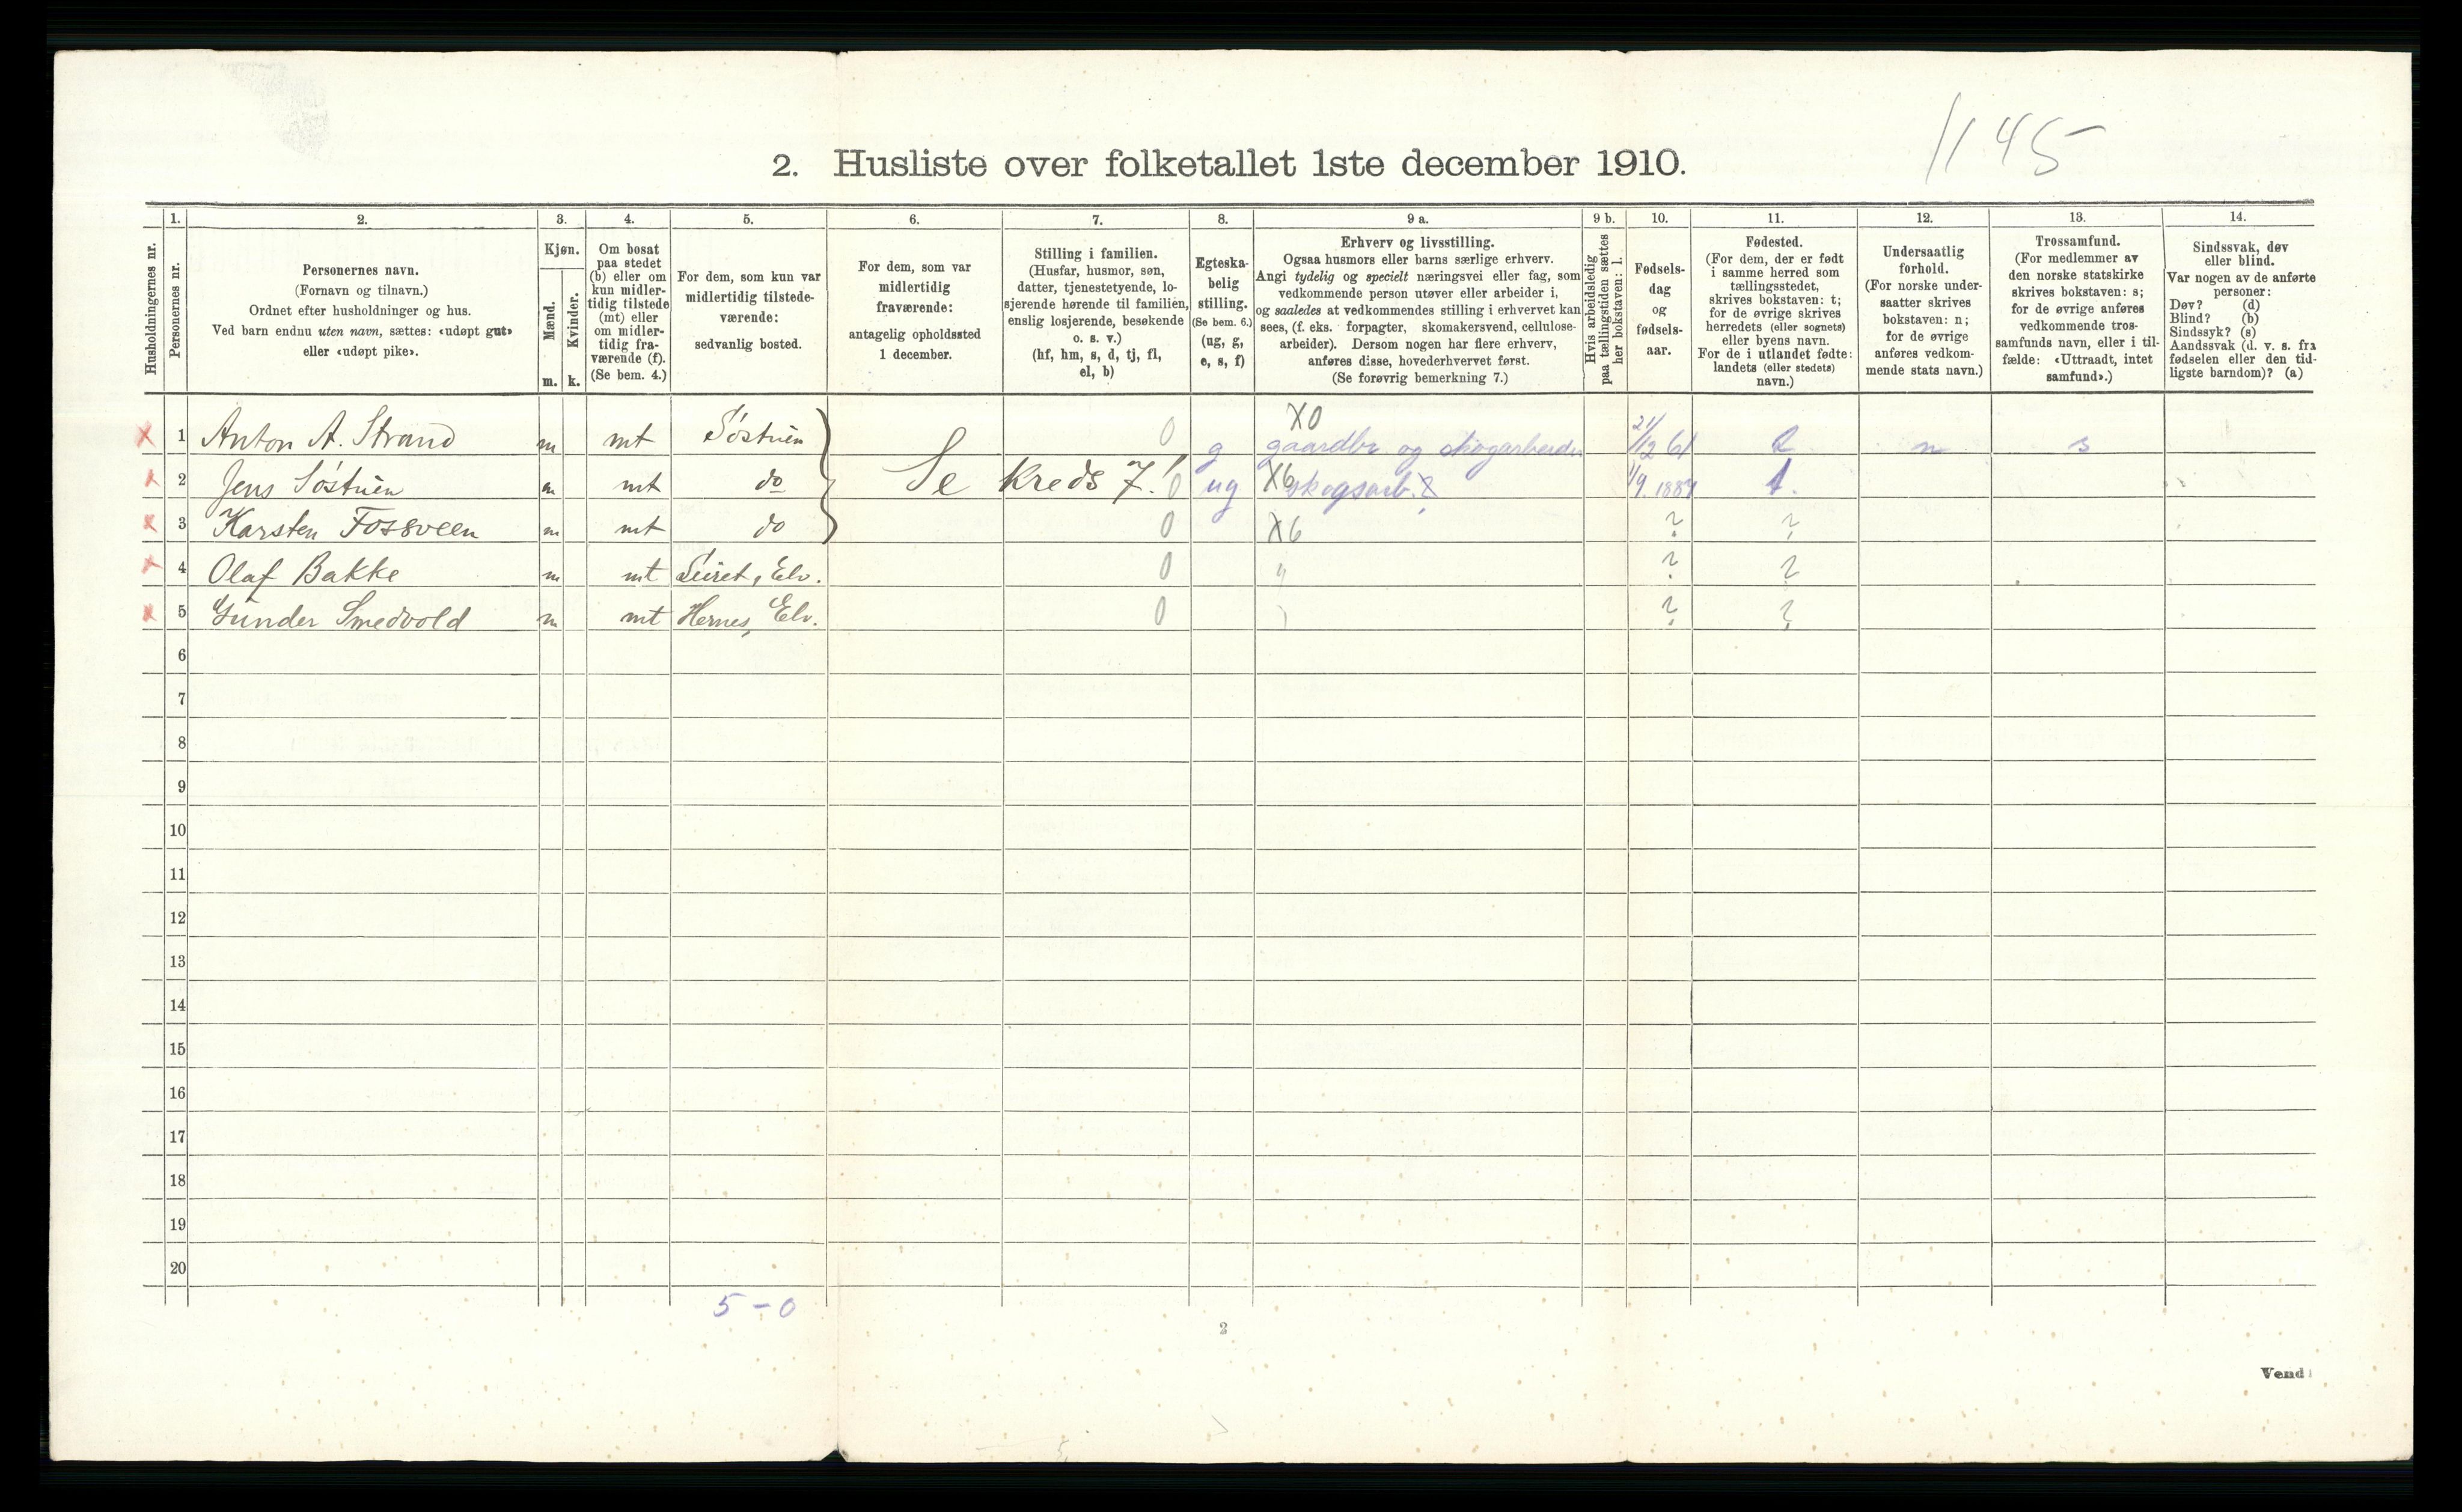 1145
2. Husliste over folketallet 1ste december 1910.
Husholdningernes nr.
1. Personernes nr.
2. Personernes navn.
(Fornavn og tilnavn.)
Ordnet efter husholdninger og hus.
Ved barn endnu uten navn, sættes: «udøpt gut»
eller «udøpt pike».
3. Kjøn.
Mænd. Kvinder.
m. k.
4. Om bosat
paa stedet
(b) eller om
kun midler-
tidig tilstede
(mt) eller
om midler-
tidig fra-
værende (f).
(Se bem. 4.)
5. For dem, som kun var
midlertidig tilstede-
værende:
sedvanlig bosted.
6. For dem, som var
midlertidig
fraværende:
antagelig opholdssted
1 december.
7. Stilling i familien.
(Husfar, husmor, søn,
datter, tjenestetyende, lo-
sjerende hørende til familien,
enslig losjerende, besøkende
o. s. v.)
(hf, hm, s, d, tj, fl,
el, b)
8. Egteska-
belig
stilling.
(Se bem. 6.)
(ug, g,
e, s, f)
9 a. Erhverv og livsstilling.
Ogsaa husmors eller barns særlige erhverv.
Angi tydelig og specielt næringsvei eller fag, som
vedkommende person utøver eller arbeider i,
og saaledes at vedkommendes stilling i erhvervet kan
sees, (f. eks. forpagter, skomakersvend, cellulose-
arbeider). Dersom nogen har flere erhverv,
anføres disse, hovederhvervet først.
(Se forøvrig bemerkning 7.)
9 b. Hvis arbeidsledig
paa tællingstiden sættes
her bokstaven: l.
10. Fødsels-
dag
og
fødsels-
aar.
11. Fødested.
(For dem, der er født
i samme herred som
tællingsstedet,
skrives bokstaven: t;
for de øvrige skrives
herredets (eller sognets)
eller byens navn.
For de i utlandet fødte:
landets (eller stedets)
navn.)
12. Undersaatlig
forhold.
(For norske under-
saatter skrives
bokstaven: n;
for de øvrige
anføres vedkom-
mende stats navn.)
13. Trossamfund.
(For medlemmer av
den norske statskirke
skrives bokstaven: s;
for de øvrige anføres
vedkommende tros-
samfunds navn, eller i til-
fælde: «Uttraadt, intet
samfund».)
14. Sindssvak, døv
eller blind.
Var nogen av de anførte
personer:
Døv? (d)
Blind? (b)
Sindssyk? (s)
Aandssvak (d. v. s. fra
fødselen eller den tid-
ligste barndom)? (a)
X0
x 1 Anton A. Strand m mt Søstuen 0 g gaardbr og skogarbeider 21/12 61 n s
x 2 Jens Søstuen m mt do Se kreds 7! 0 ug X6 skogsarb. 1/9. 188 t.
x 3 Karsten Fossveen m mt do 0 X6 ? ?
x 4 Olaf Bakke m mt Leiret, Elv. 0 " ? ?
x 5 Gunder Smedvold m mt Hernes, Elv. 0 ? ?
6
7
8
9
10
11
12
13
14
15
16
17
18
19
20
5 - 0
2
Vend